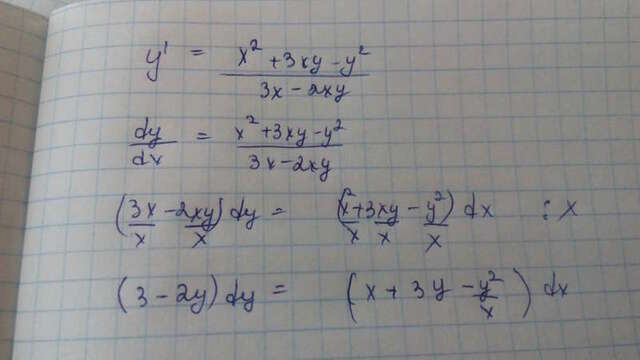 y' = (x² + 3xy - y²) / (3x - 2xy)
dy/dx = (x² + 3xy - y²) / (3x - 2xy)
(3x/x - 2xy/x) dy = (x²/x + 3xy/x - y²/x) dx : x
(3 - 2y) dy = (x + 3y - y²/x) dx